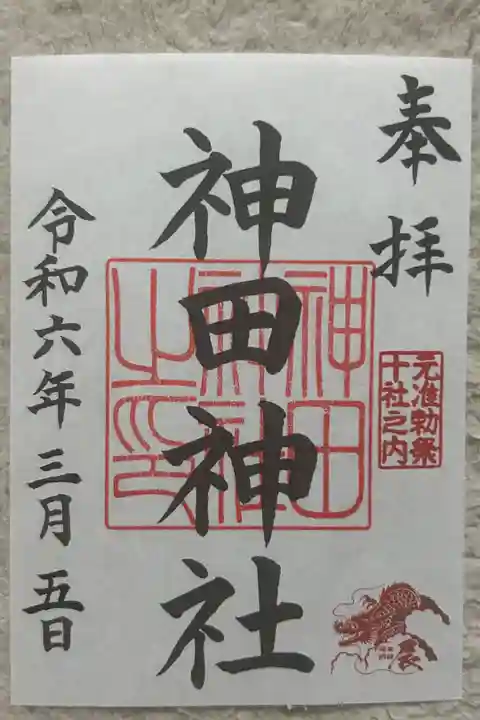 奉拝
元准勅祭
十社之内
辰
神田神社
神田
神社
之印
令和六年三月五日